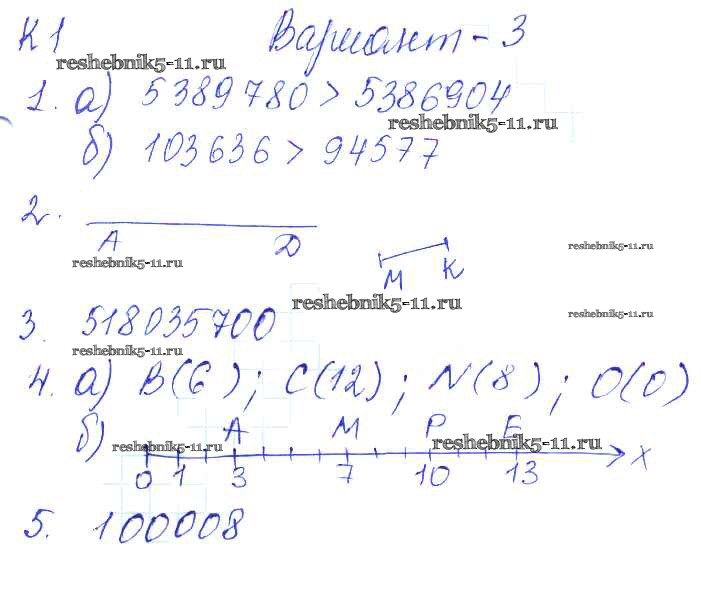 К1 Вариант - 3
reshebnik5-11.ru
1. а) 5389780 > 5386904
reshebnik5-11.ru
б) 103636 > 94577
2.
А Д
М К
reshebnik5-11.ru
reshebnik5-11.ru
reshebnik5-11.ru
reshebnik5-11.ru
3. 518035700
reshebnik5-11.ru
4. а) В(6); С(12); N(8); О(0)
б) А М Р Е
reshebnik5-11.ru
reshebnik5-11.ru
0 1 3 7 10 13 х
5. 100008